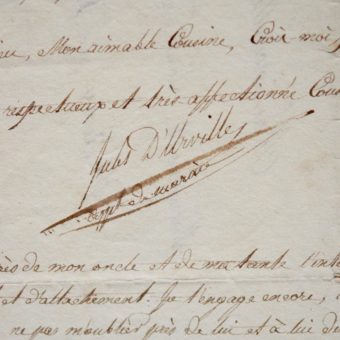 Mon aimable Cousine, Crois moi,
respectueux et très affectionné Cous
Jules D'Urville
de marine
de mon oncle et de ma tante l'inte
et d'attachement. Je l'engage encore,
ne pas m'oublier près de lui et à lui